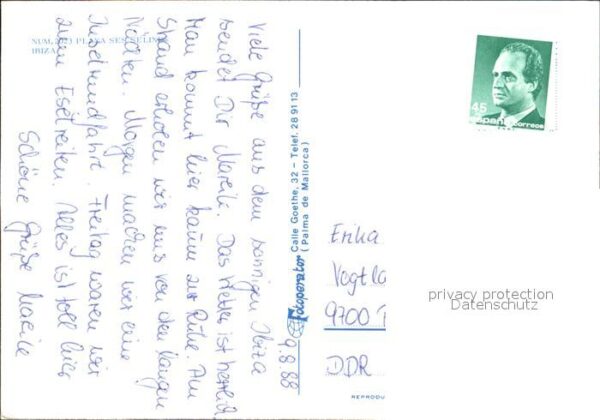 NUM. PLAYA SES
IBIZA
Viele Grüße aus dem sonnigen Ibiza
sendet Dir Mareile. Das Wetter ist herrlich
Man kommt hier kaum zur Ruhe. Am
Strand erholen wir uns von den langen
Nächten. Morgen machen wir eine
Inselrundfahrt. Freitag waren wir
zum Eselreiten. Alles ist toll hier
Schöne Grüße Mareile
Fotoperator Calle Goethe, 32 - Telef. 28 91 13
(Palma de Mallorca)
9.8.88
45
España correos
Erika
Vogtla
9700
DDR
privacy protection
Datenschutz
REPRODU